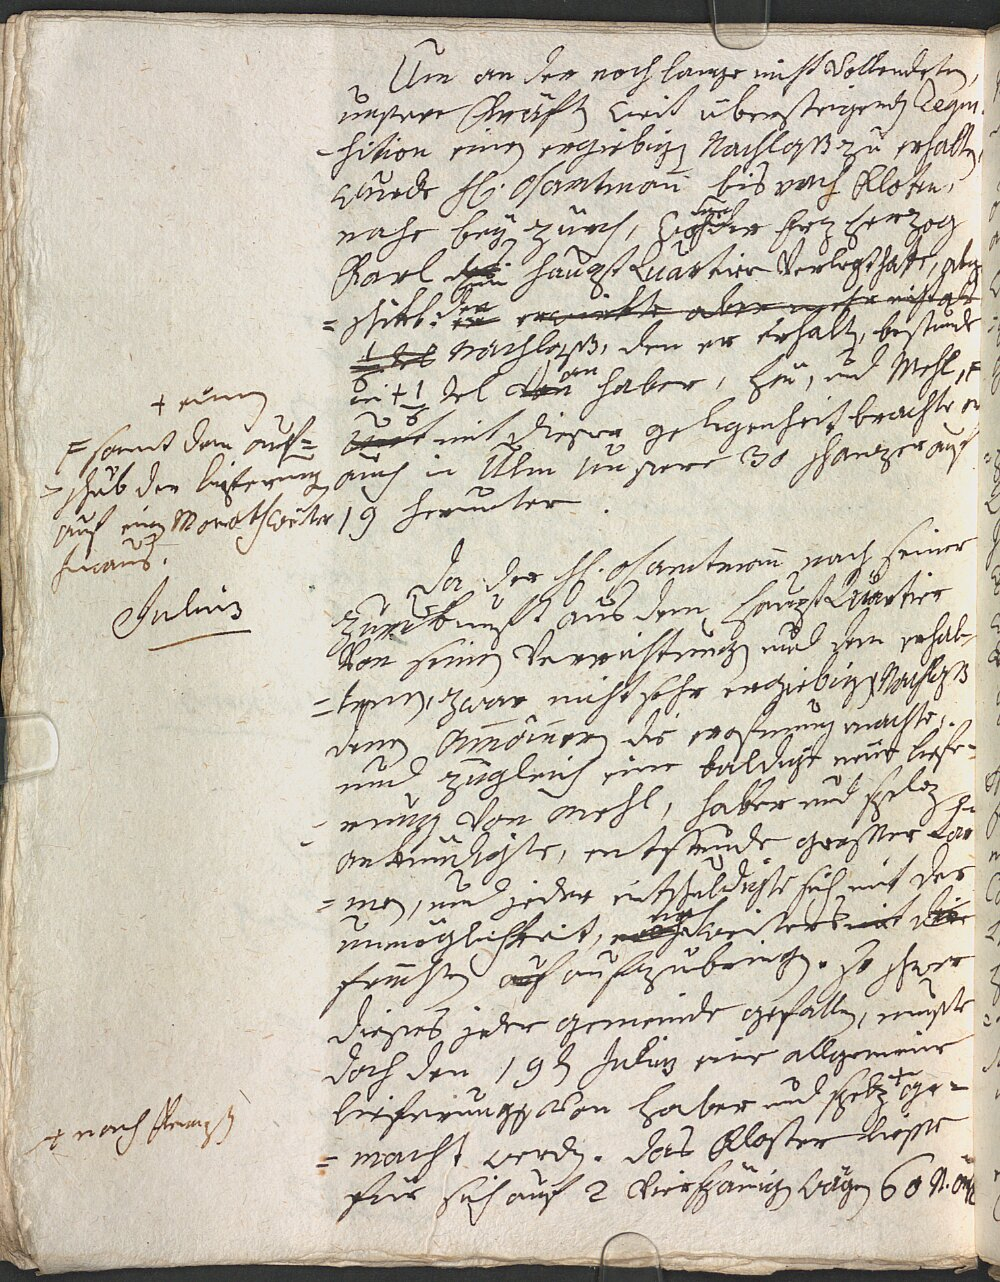 Um an der noch lange nicht Vollendeten,
unsere Kräfte weit übersteigenden Requi
-sition einen ergiebigen Nachlaß zu erhalten,
wurde H. Oberamtmann bis nach Kloten,
nahe bey Zürch, Erz Herzog
Karl sein Haupt Quartier Verlegt hatte, abge
=schikt. der erwirkte aber mehr nicht als
Nachlaß, den er erhalten, bestunde
in + 1/6 tel an Haber, Heu, und Mehl, F
mit dieser gelegenheit brachte er
auch in Ulm Unsere 30 schanzer auf
19 herunter.
+ einem
F samt dem auf=
=schub der lieferung
auf ein Monath weiter
hinaus.
Julius
Da der H. Oberamtmann nach seiner
Zurükkunft aus dem Haupt Quartier
Von seinen Verrichtungen und dem erhal-
=tenen, zwar nicht sehr ergiebigen Nachlaß
denen Ammännern die erofnung machte,
und zugleich eine baldige neue liefe-
-rung Von Mehl, Haber und
ankündigte, entstunde grosser Lär
=men, und jeder entschuldigte sich mit der
unmöglichkeit, noch weiters die
früchten auf aufzubringen. So schwer
dieses jeder gemeinde gefallen, mußte
doch den 19t Julius eine allgemeine
lieferung von Haber und + ge-
=macht werden. das Kloster liesse
für sich auf 2 Vierspänigen Wägen 60
+ nach